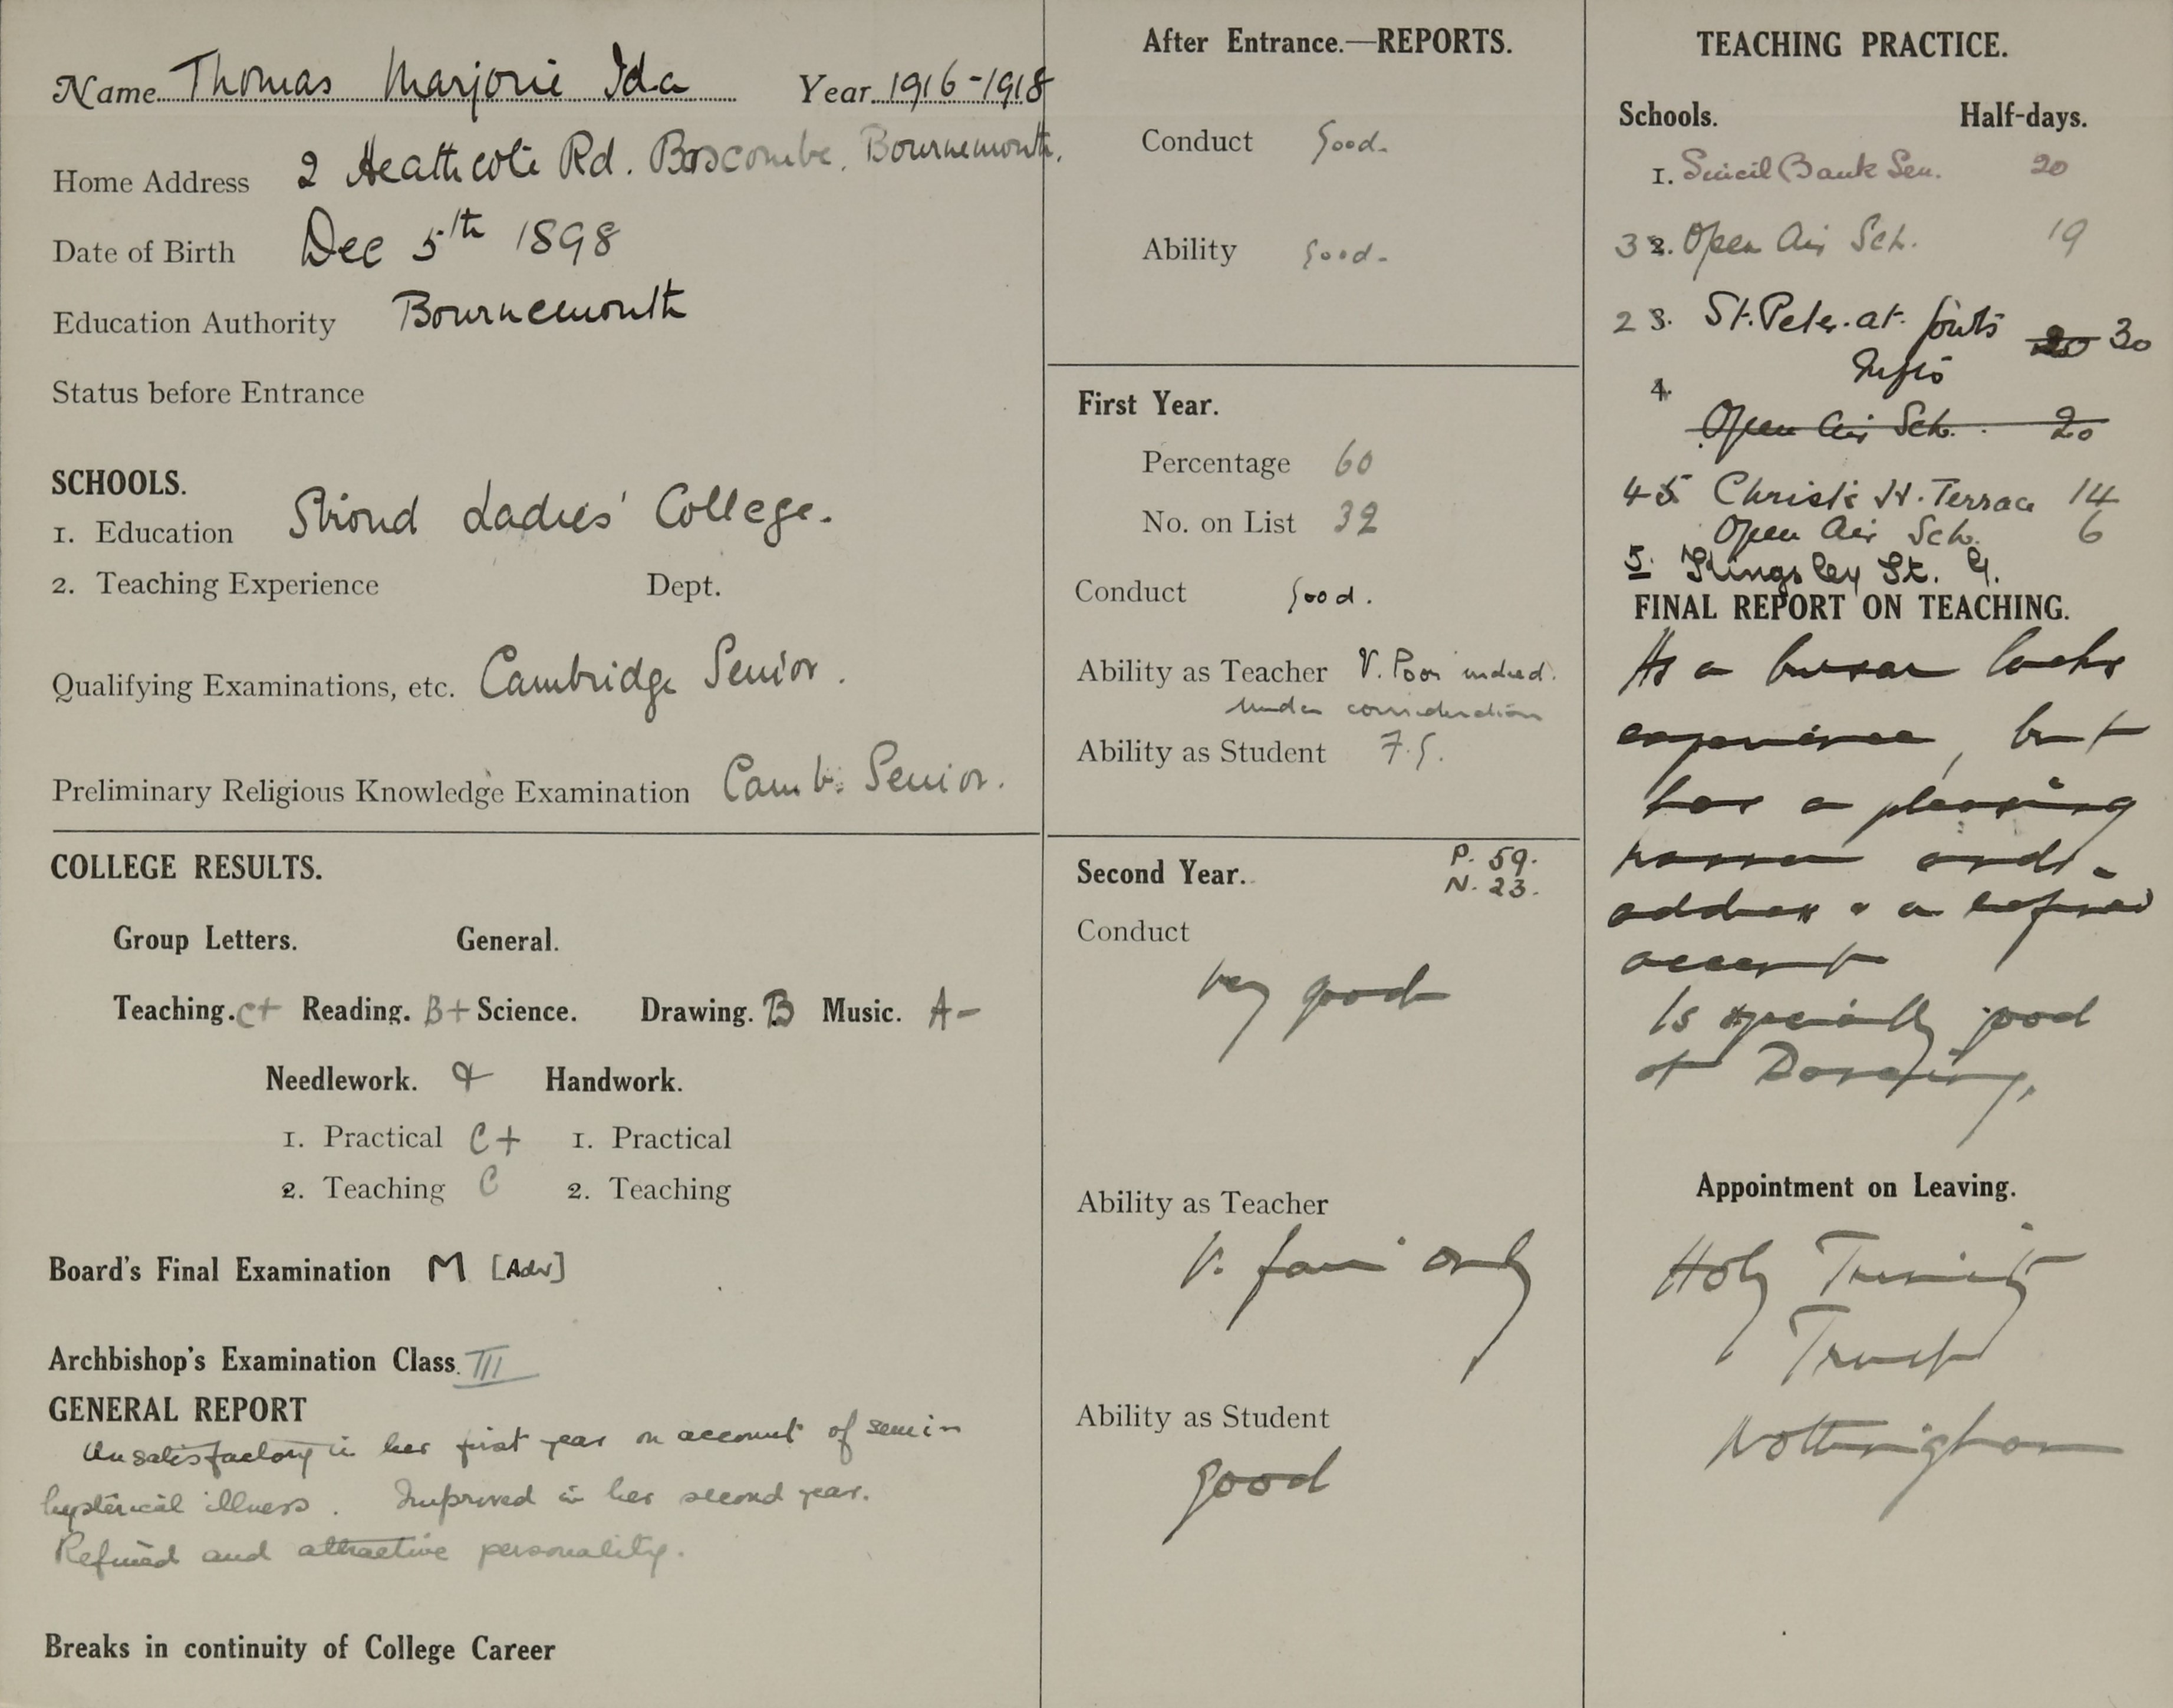 Name Thomas Marjorie Ida Year 1916-1918
Home Address 2 Heathcote Rd. Boscombe. Bournemouth.
Date of Birth Dec 5th 1898
Education Authority Bournemouth
Status before Entrance
SCHOOLS.
1. Education Stroud Ladies' College.
2. Teaching Experience Dept.
Qualifying Examinations, etc. Cambridge Senior.
Preliminary Religious Knowledge Examination Camb. Senior.
COLLEGE RESULTS.
Group Letters. General.
Teaching. C+ Reading. B+ Science. Drawing. B Music. A-
Needlework. Handwork.
1. Practical C+ 1. Practical
2. Teaching C 2. Teaching
Board's Final Examination M [Adv]
Archbishop's Examination Class III
GENERAL REPORT
Unsatisfactory in her first year on account of semi-
hysterical illness. Improved in her second year.
Refined and attractive personality.
Breaks in continuity of College Career
After Entrance.—REPORTS.
Conduct Good.
Ability Good.
First Year.
Percentage 60
No. on List 32
Conduct Good.
Ability as Teacher V. Poor indeed.
under consideration
Ability as Student F.G.
Second Year. P. 59.
N. 23.
Conduct
very good
Ability as Teacher
V. fair only
Ability as Student
good
TEACHING PRACTICE.
Schools. Half-days.
1. Sincil Bank Sen. 20
3 2. Open Air Sch. 19
2 3. St. Peter-at-Gowts 20 30
Infts
4.
Open Air Sch. 20
4 5 Christ's H. Terrace 14
Open Air Sch. 6
5. Kingsley St. G.
FINAL REPORT ON TEACHING.
As a bursar lacks
experience, but
has a pleasing
manner and
address & a refined
accent
Is specially good
at Dancing.
Appointment on Leaving.
Holy Trinity
Trust
Nottingham